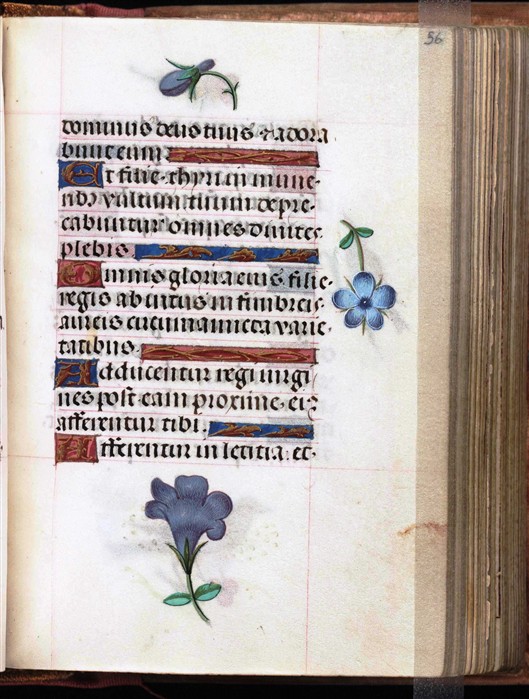 56
dominus deus tuus & adora
bunt eum
Et filie thyri in mune-
ribz vultum tuum depre-
cabuntur omnes diuites
plebis.
Omnis gloria eius filie
regis ab intus in fimbreis
aureis circumamicta varie-
tatibus.
Adducentur regi uirgi
nes post eam proxime eiz
afferentur tibi.
Afferentur in letitia et